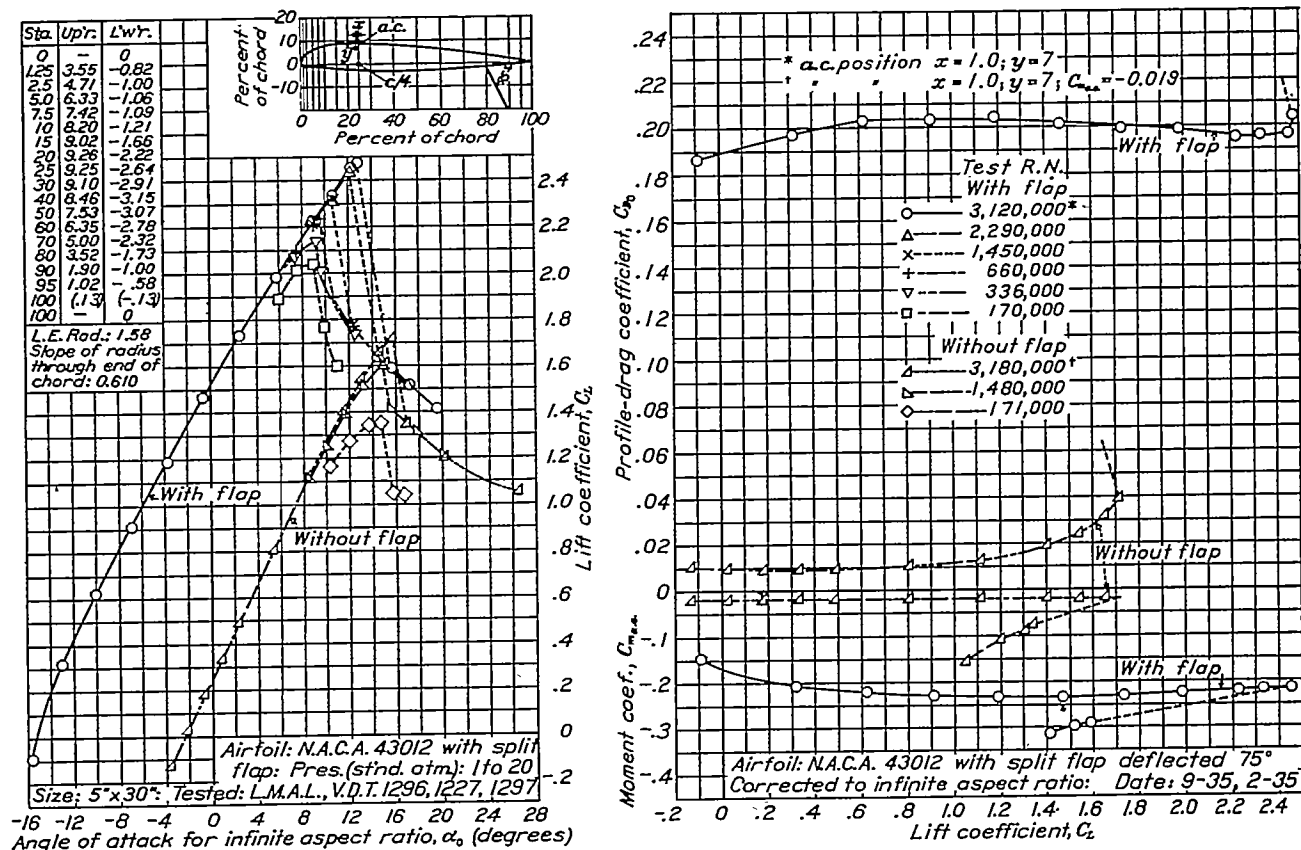 Sta. Up'r. L'w'r.
0 – 0
1.25 3.55 -0.82
2.5 4.71 -1.00
5.0 6.33 -1.06
7.5 7.42 -1.09
10 8.20 -1.21
15 9.02 -1.66
20 9.26 -2.22
25 9.25 -2.64
30 9.10 -2.91
40 8.46 -3.15
50 7.53 -3.07
60 6.35 -2.78
70 5.00 -2.32
80 3.52 -1.73
90 1.90 -1.00
95 1.02 -.58
100 (.13) (-.13)
100 – 0
L.E. Rad.: 1.58
Slope of radius
through end of
chord: 0.610
Percent
of chord
20
10
0
-10
x
a.c.
y
c/4
0 20 40 60 80 100
Percent of chord
2.4
2.2
2.0
1.8
1.6
1.4
1.2
1.0
.8
.6
.4
.2
0
-.2
Lift coefficient, C_L
With flap
Without flap
Airfoil: N.A.C.A. 43012 with split
flap: Pres.(st'nd. atm.): 1 to 20
Size: 5"x30": Tested: L.M.A.L., V.D.T. 1296, 1227, 1297
-16 -12 -8 -4 0 4 8 12 16 20 24 28
Angle of attack for infinite aspect ratio, α₀ (degrees)
.24
.22
.20
.18
.16
.14
.12
.10
.08
.06
.04
.02
0
Profile-drag coefficient, C_D₀
* a.c. position x = 1.0; y = 7
† " " x = 1.0; y = 7; C_m a.c. = -0.019
With flap
Test R.N.
With flap
3,120,000*
2,290,000
1,450,000
660,000
336,000
170,000
Without flap
3,180,000†
1,480,000
171,000
Without flap
With flap
-.1
-.2
-.3
-.4
Moment coef., C_m a.c.
Airfoil: N.A.C.A. 43012 with split flap deflected 75°
Corrected to infinite aspect ratio: Date: 9-35, 2-35
-.2 0 .2 .4 .6 .8 1.0 1.2 1.4 1.6 1.8 2.0 2.2 2.4
Lift coefficient, C_L